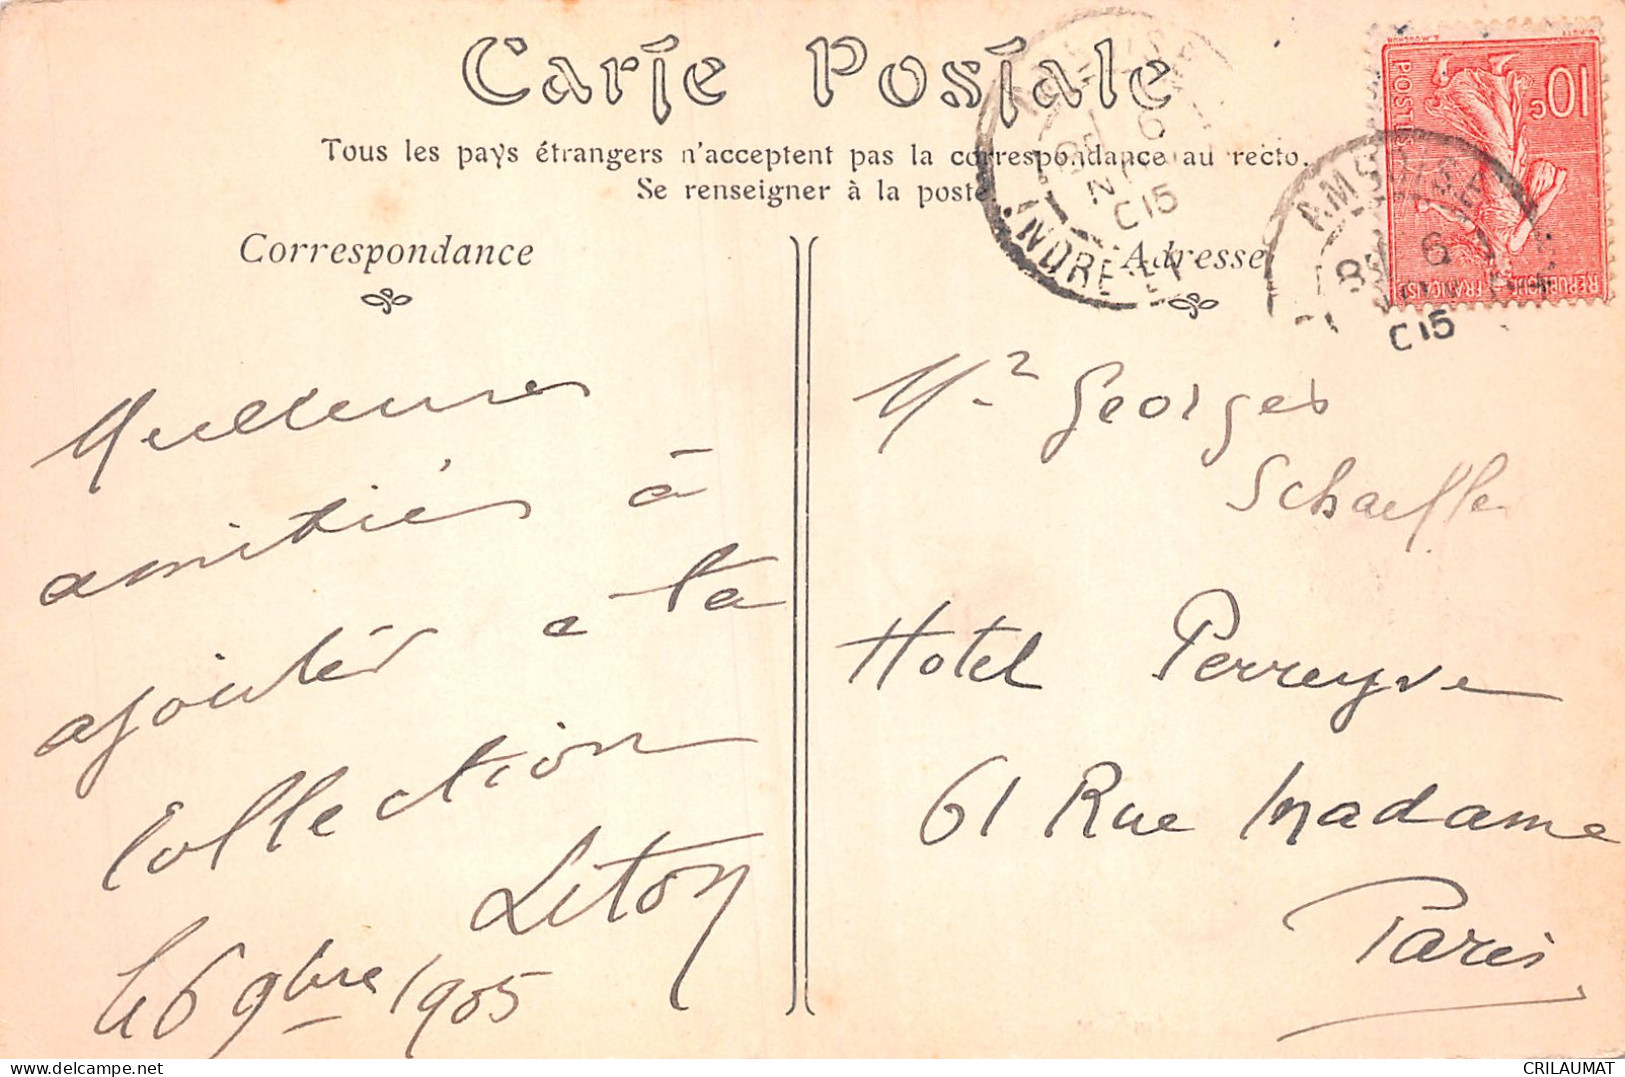 Carte Postale
Tous les pays étrangers n'acceptent pas la correspondance au recto.
Se renseigner à la poste.
Correspondance
Adresse
10c
POSTES
REPUBLIQUE FRANÇAISE
AMBOISE
6
C15
INDRE-ET-
AMBOISE
8
6
C15
Meilleures
amitiés à
ajouter a ta
Collection
Liton
Le 6 9bre 1905
Mr Georges
Schaeffer
Hotel Perreyve
61 Rue Madame
Paris
delcampe.net
CRILAUMAT